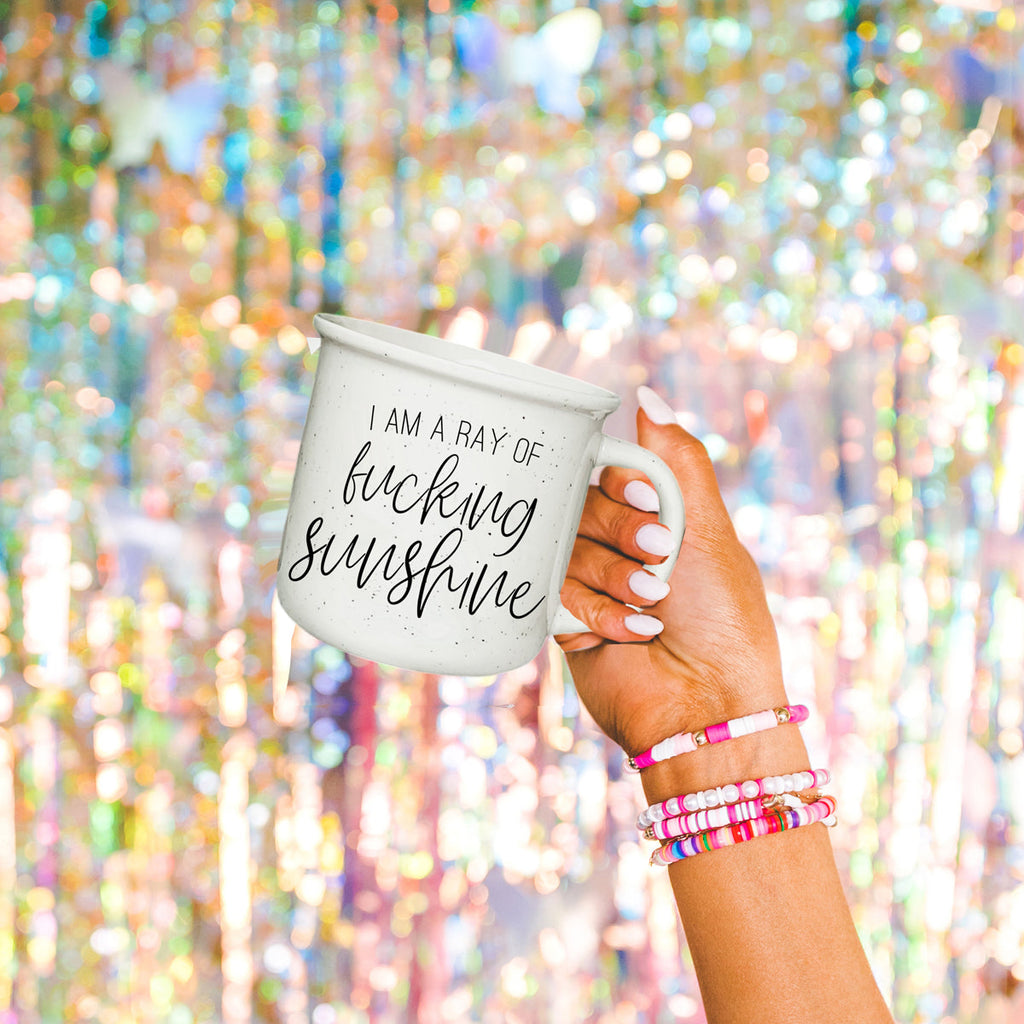 I AM A RAY OF
fucking
sunshine